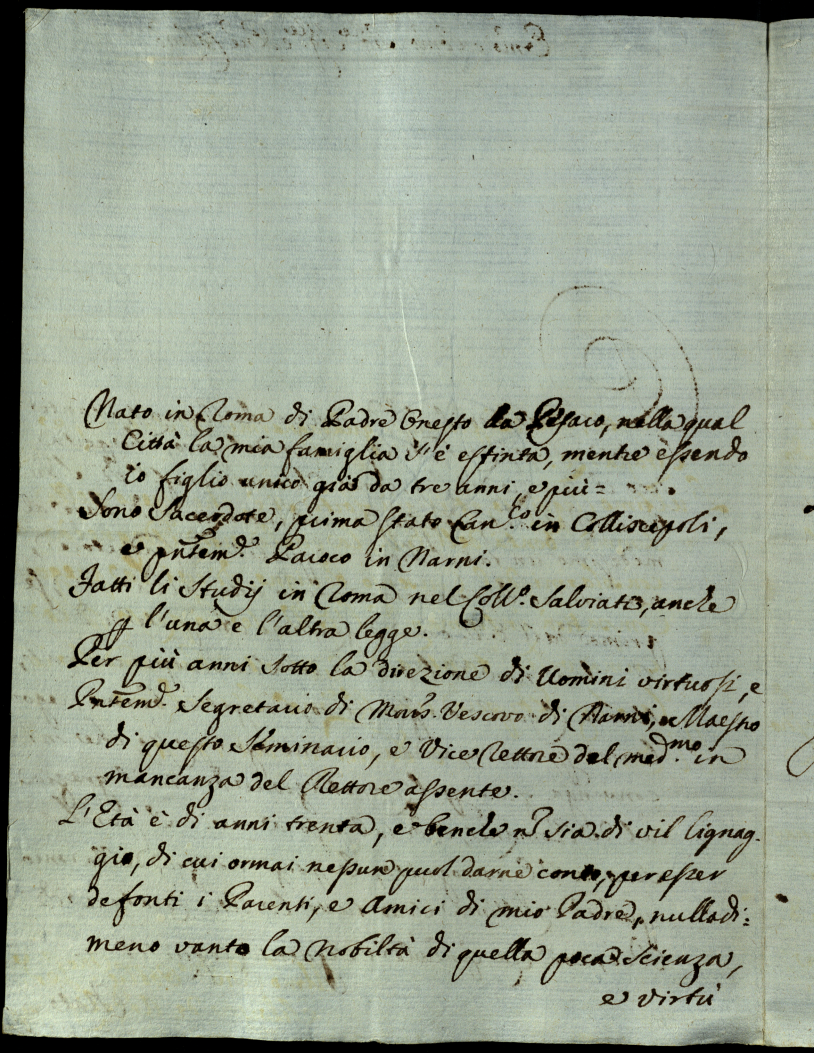 Nato in Roma di Padre Onesto da Pesaro, nella qual
Città la mia famiglia s'è estinta, mentre essendo
io figlio unico già da tre anni, e più=
Sono Sacerdote, prima stato Can.co in Colliscipoli,
e pntem.e Paroco in Narni.
Fatti li Studij in Roma nel Coll.o Salviati, anche
l'una e l'altra legge.
Per più anni sotto la direzione di Uomini virtuosi, e
Pntem.e Segretario di Mons.r Vescovo di Narni, e Maestro
di questo Seminario, e Vice Rettore del med.mo in
mancanza del Rettore assente.
L'Età è di anni trenta, e benche n sia di vil lignag-
gio, di cui ormai nessun puol darne conto, per esser
defonti i Parenti, e Amici di mio Padre, nulladi=
meno vanto la nobiltà di quella poca Scienza,
e virtù